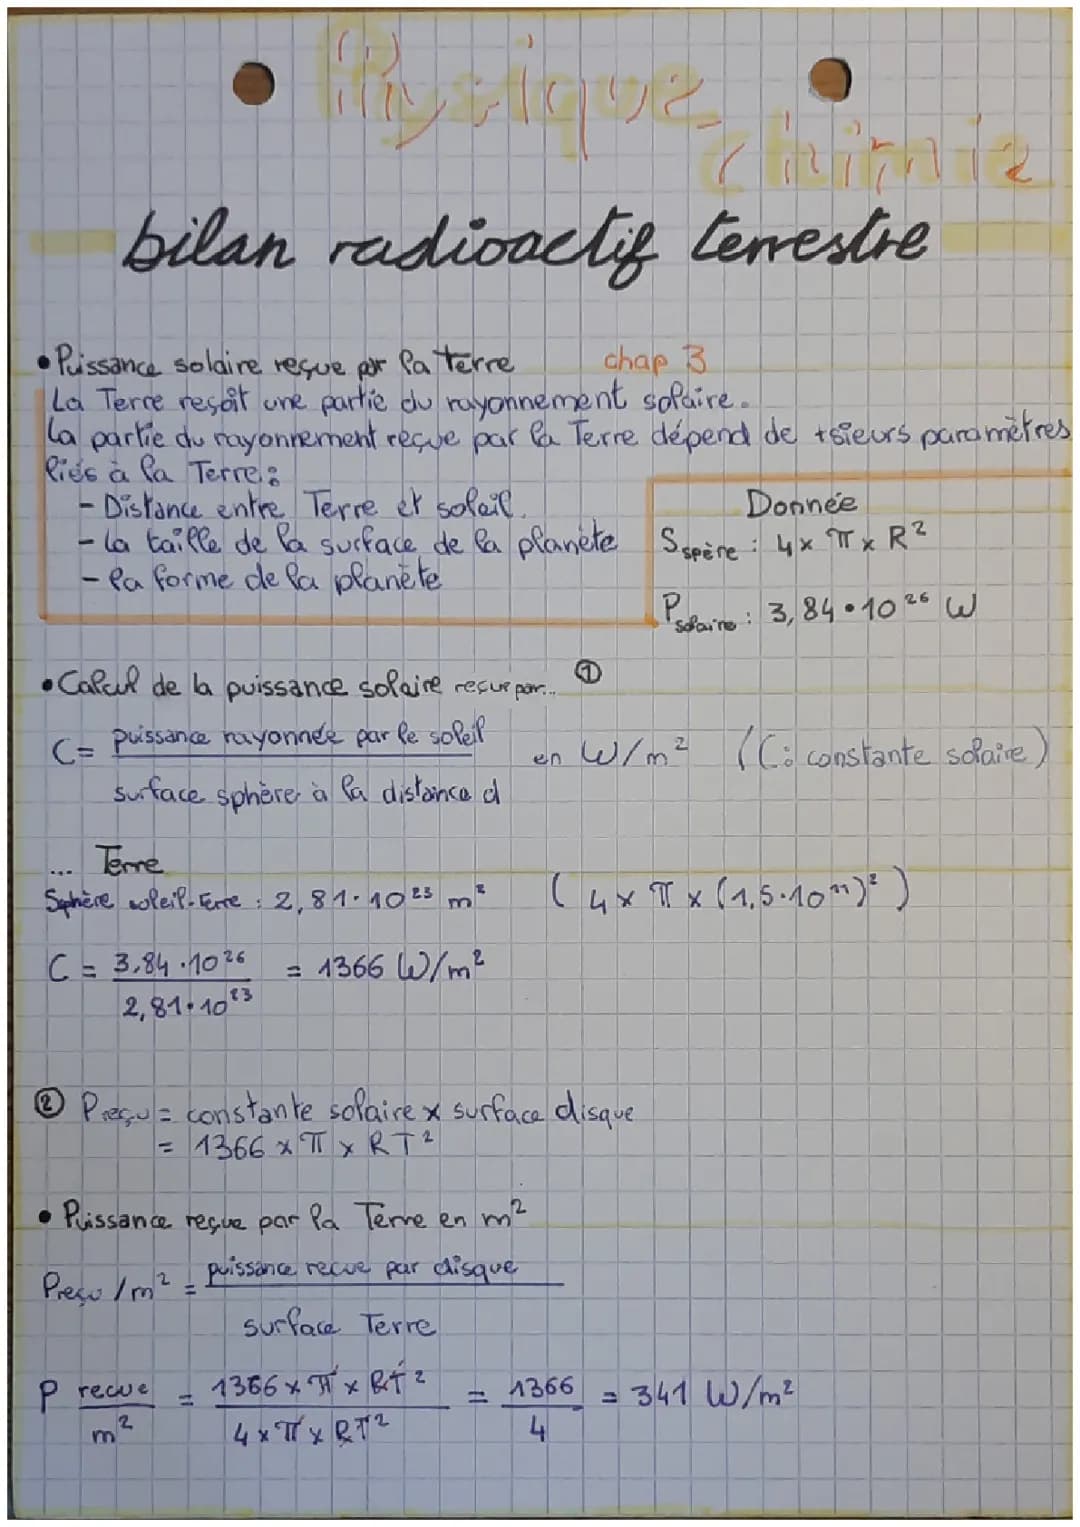 Physique
chimie
bilan radioactif terrestre
• Puissance solaire reçue par la terre chap 3
La Terre resoît une partie du rayonnement solaire.
La partie du rayonnement reçue par la Terre dépend de +sieurs paramètres
liés à la Terre :
- Distance entre Terre et soleil.
- la taille de la surface de la planète
- la forme de la planète
Donnée
S spère : 4 x π x R²
P solaire : 3,84 • 10²⁶ W
• Calcul de la puissance solaire reçue par... ①
C = puissance rayonnée par le soleil
en W/m² (C : constante solaire)
surface sphère à la distance d
... Terre
Sphère soleil-Terre : 2,81 · 10²³ m² (4 x π x (1,5 · 10¹¹)²)
C = 3,84 · 10²⁶ = 1366 W/m²
2,81 · 10²³
② Preçu = constante solaire x surface disque
= 1366 x π x RT²
• Puissance reçue par la Terre en m²
Preçu /m² = puissance recue par disque
surface Terre
P recue = 1366 x π x RT² = 1366 = 341 W/m²
m² 4 x π x RT² 4